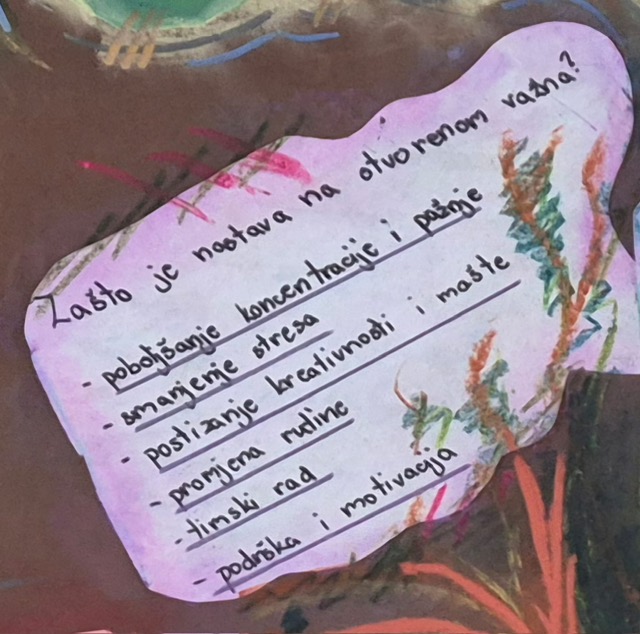 Zašto je nastava na otvorenom važna?
- poboljšanje koncentracije i pažnje
- smanjenje stresa
- postizanje kreativnosti i mašte
- promjena rutine
- timski rad
- podrška i motivacija